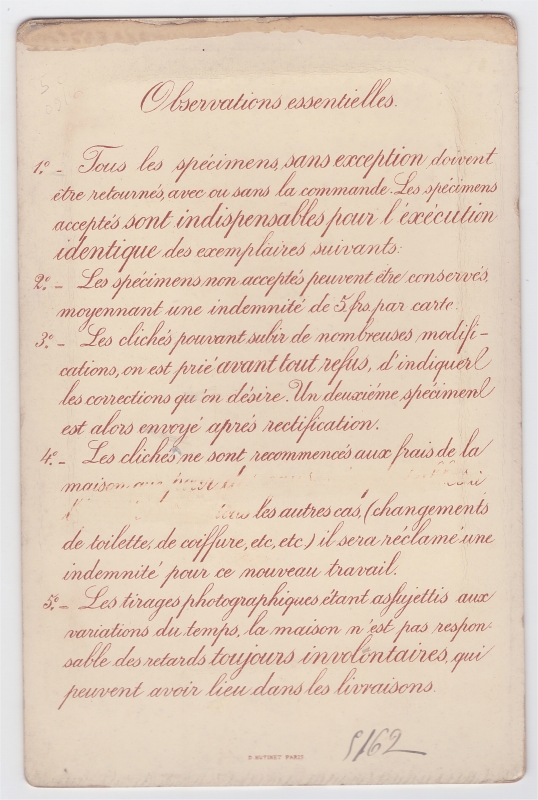 Observations essentielles.
1º. - Tous les spécimens, sans exception, doivent
être retournés, avec ou sans la commande. Les spécimens
acceptés sont indispensables pour l'exécution
identique des exemplaires suivants:
2º. - Les spécimens non acceptés peuvent être conservés,
moyennant une indemnité de 5 frs. par carte.
3º. - Les clichés pouvant subir de nombreuses modifi-
cations, on est prié avant tout refus, d'indiquer
les corrections qu'on désire. Un deuxième spécimen
est alors envoyé après rectification.
4º. - Les clichés ne sont recommencés aux frais de la
maison que pour
les autres cas, (changements
de toilette, de coiffure, etc, etc.) il sera réclamé une
indemnité pour ce nouveau travail.
5º. - Les tirages photographiques étant assujettis aux
variations du temps, la maison n'est pas respon-
sable des retards toujours involontaires, qui
peuvent avoir lieu dans les livraisons.
PARIS